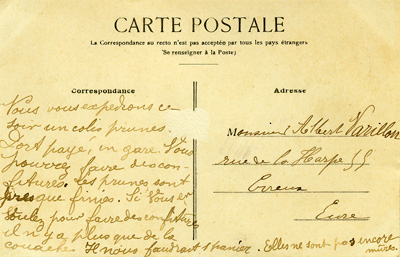 CARTE POSTALE
La Correspondance au recto n'est pas acceptée par tous les pays étrangers
(Se renseigner à la Poste)
Correspondance
Vous vous expédions ce
soir un colis prunes.
Port payé, en gare. Vous
pourrez faire des con-
fitures. Les prunes sont
presque finies. Si vous en
voulez pour faire des confitures
il n'y a plus que de la
couache. Il nous faudrait 1 panier. Elles ne sont pas encore
mûres.
Adresse
Monsieur Albert Varillon
rue de la Harpe 55
Evreux
Eure